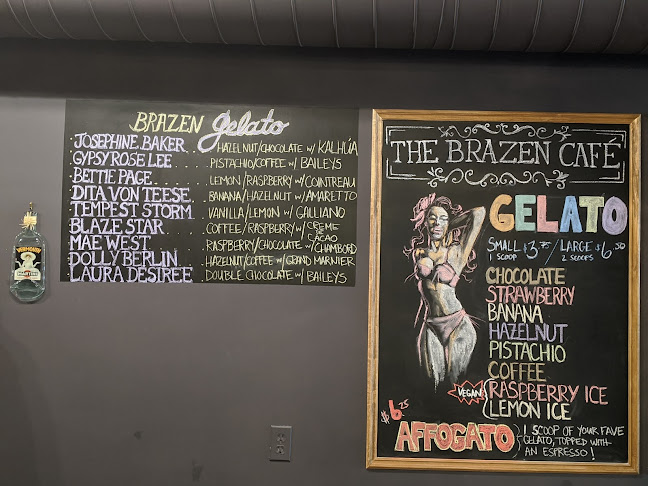 BRAZEN gelato
JOSEPHINE BAKER . HAZELNUT/CHOCOLATE w/ KALHÚA
GYPSY ROSE LEE .... PISTACHIO/COFFEE w/ BAILEYS
BETTIE PAGE ....... LEMON/RASPBERRY w/ COINTREAU
DITA VON TEESE . BANANA/HAZELNUT w/ AMARETTO
TEMPEST STORM . VANILLA/LEMON w/ GALLIANO
BLAZE STAR ........ COFFEE/RASPBERRY w/ CREME de CACAO
MAE WEST ......... RASPBERRY/CHOCOLATE w/ CHAMBORD
DOLLY BERLIN ... HAZELNUT/COFFEE w/ GRAND MARNIER
LAURA DESIREE .. DOUBLE CHOCOLATE w/ BAILEYS
THE BRAZEN CAFÉ
GELATO
SMALL $3.75 / LARGE $6.50
1 SCOOP 2 SCOOPS
CHOCOLATE
STRAWBERRY
BANANA
HAZELNUT
PISTACHIO
COFFEE
VEGAN
RASPBERRY ICE
LEMON ICE
$6.25
AFFOGATO
1 SCOOP OF YOUR FAVE
GELATO, TOPPED WITH
AN ESPRESSO!